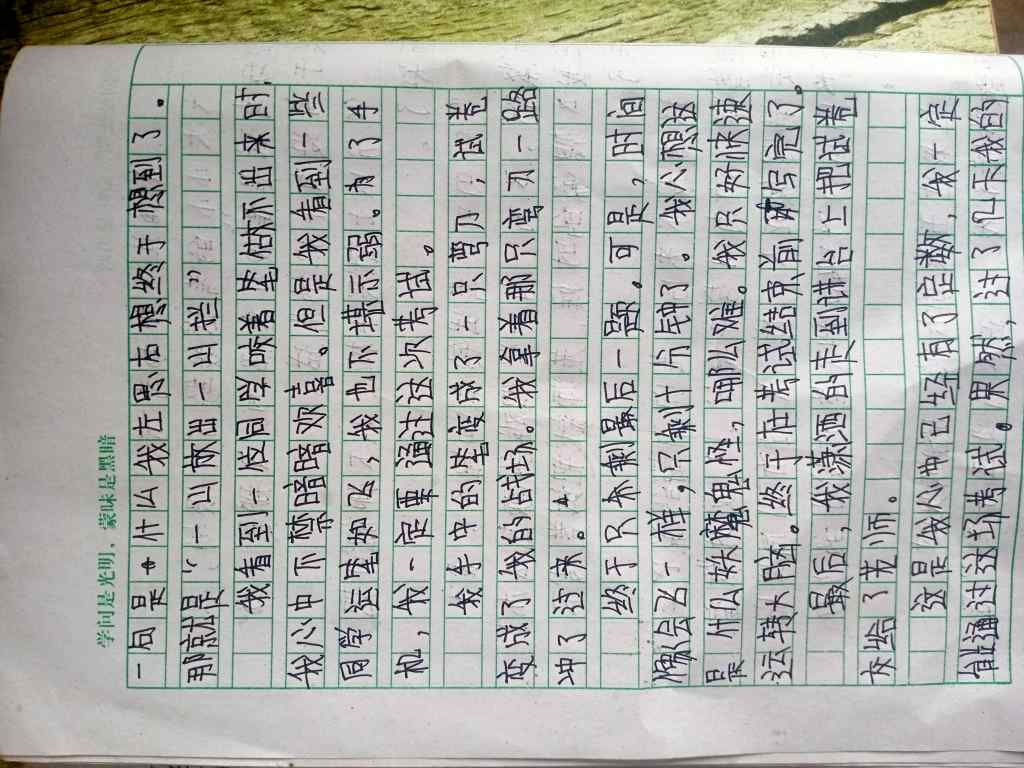 学问是光明，蒙昧是黑暗
一句是什么我左思右想终于想到了。
那就是“一山献出一山拦”
我看到一位同学咬着笔估不出来时
我心中不禁暗暗欢喜。但是我看到一些
同学运笔如飞，我也不堪示弱。为了手
机，我一定要通过这次考试。
我手中的笔变成了一只弯刀，试卷
变成了我的战场。我拿着那只弯刀一路
冲了过来。
终于只未剩最后一题。可是，时间
像会飞一样，只剩十分钟了。我心想这
是什么妖魔鬼怪，哪么难。我只好快速
运转大脑。终于在考试结束前写完了。
最后，我潇洒的走到讲台上把试卷
交给了老师。
这是我心中已经有了定数，我一定
能通过这场考试。果然，过了几天我的